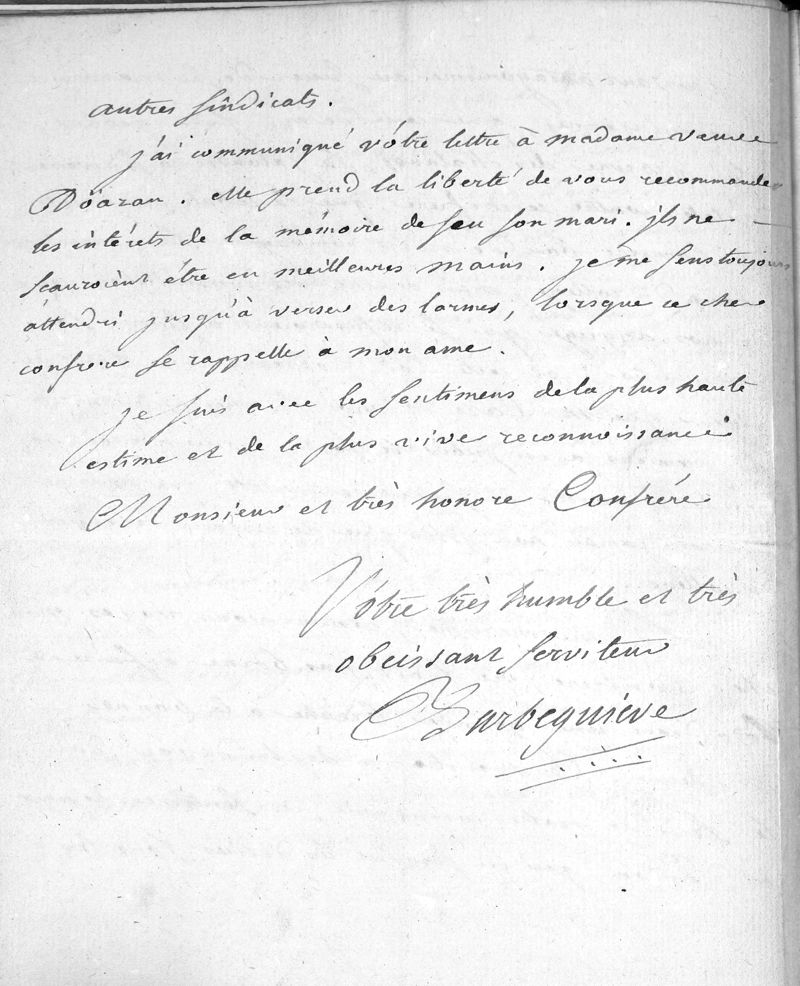 autres sindicats.
j'ai communiqué vôtre lettre à madame veuve
Döazan. elle prend la liberté de vous recommander
les intérêts de la mémoire de feu son mari. ils ne
scauroient être en meilleures mains. je me sens toujours
attendri jusqu'à verser des larmes, lorsque ce cher
confrere se rappelle à mon ame.
je suis avec les sentimens de la plus haute
estime et de la plus vive reconnoissance
Monsieur et très honoré Confrére
Vôtre très humble et très
obeissant serviteur
Barbeguiere